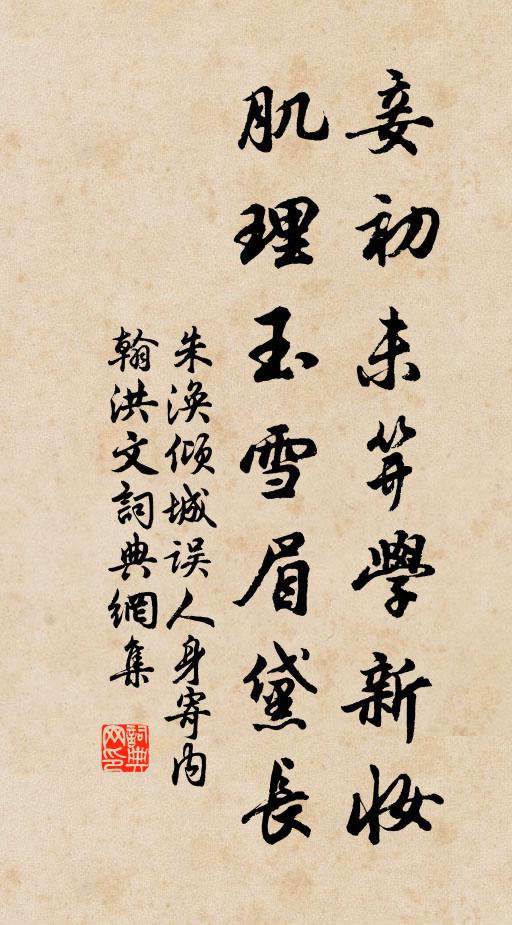 妾初未笄學新妝
肌理玉雪眉黛長
朱渙倾城误人身寄内
翰洪文詞典網集
詞典
网印